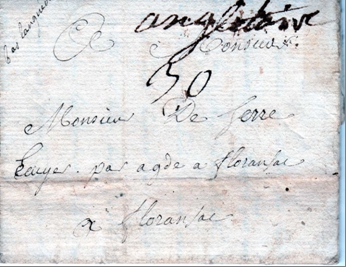 bas languedoc
angleterre
A Monsieur
30
Monsieur De ferre
Ecuyer par agde a floransac
a floransac